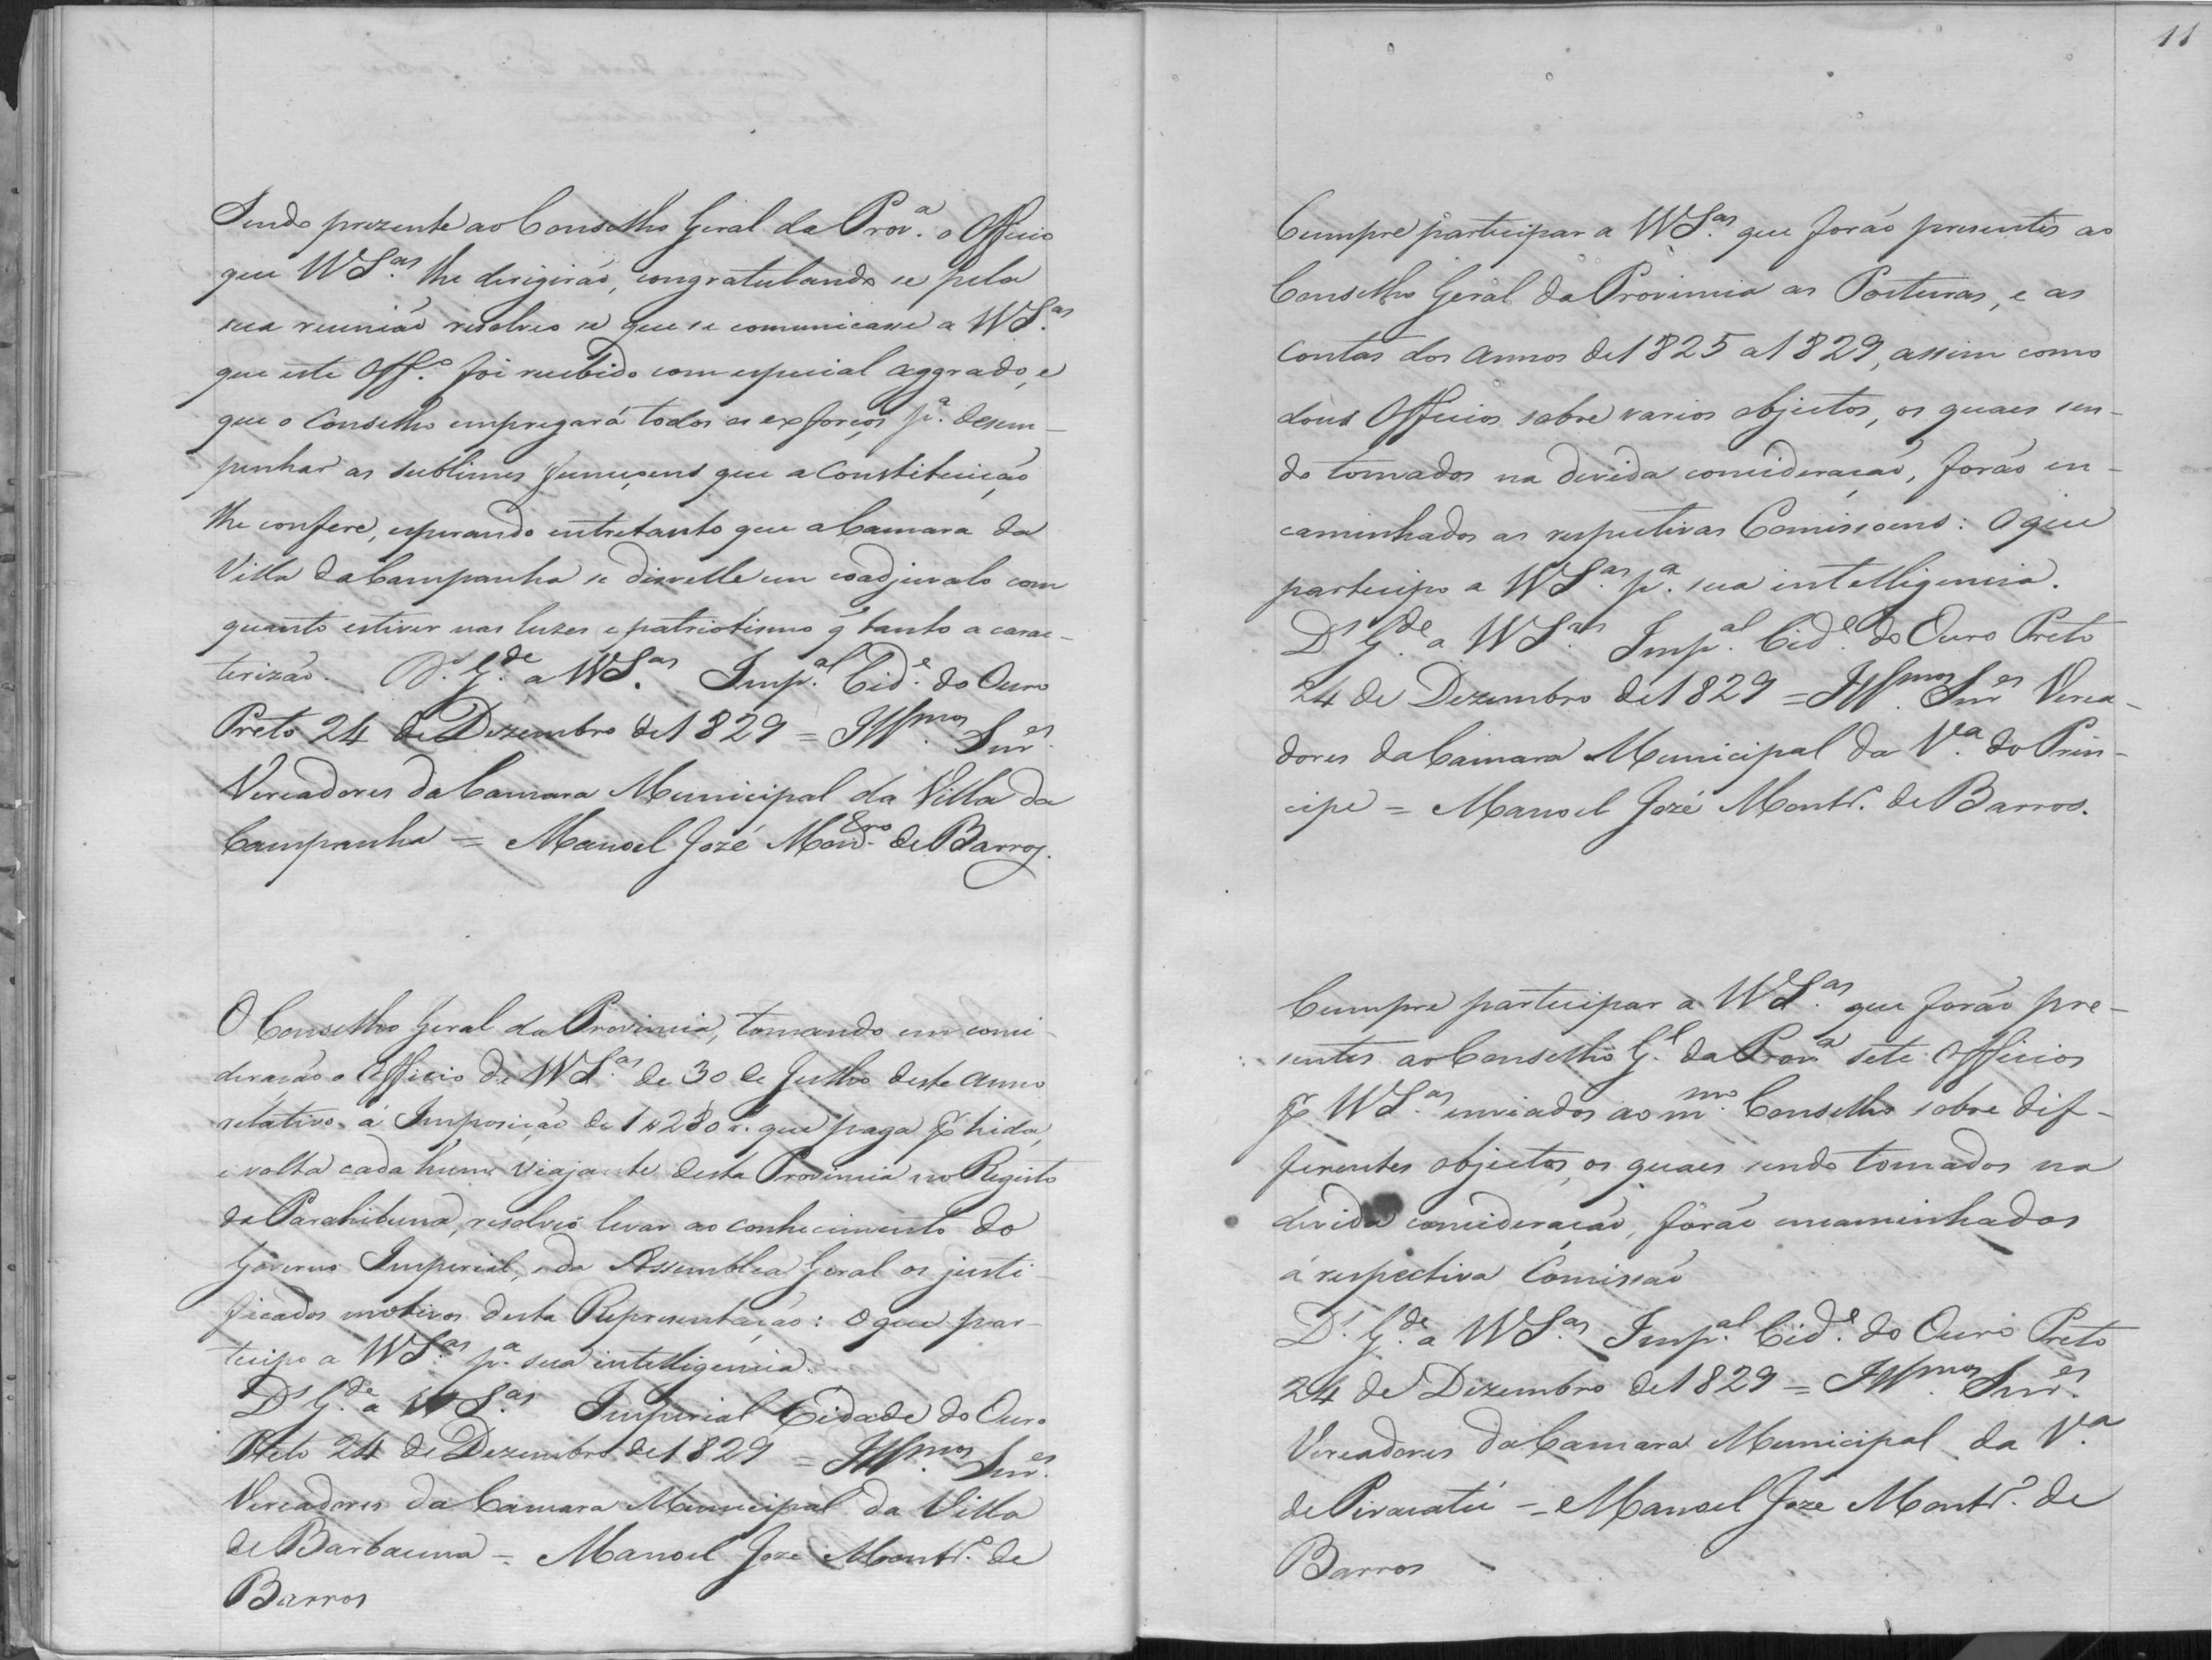 Sendo prezente ao Conselho Geral da Prov.ª o Officio
que VVS.as lhe dirigirão, congratulando se pela
sua reunião resolveo se que se comunicasse a VVS.as
que este Off.º foi recibido com especial aggrado, e
que o Conselho empregará todos os exforços p.ª desem-
penhar as sublimes funuçoens que a Constituição
lhe confere, esperando entretanto que a Camara da
Villa da Campanha se disvelle em coadjuvalo com
quanto estiver nas luzes e patriotismo q̃ tanto a carac-
terizão. D.s G.de a VVS.as Imp.al Cid.e do Ouro
Preto 24 de Dezembro de 1829 = Ill.mos Snr.es
Vereadores da Camara Municipal da Villa da
Campanha = Manoel José Mon.ro de Barros.
O Conselho Geral da Provincia, tomando em consi-
deração o Officio de VVS.as de 30 de Julho deste anno
relativo á Imposição de 1#280 r. que paga p̃ hida,
e volta cada hum viajante desta Provincia no Registo
da Parahibuna, resolveo levar ao conhecimento do
Governo Imperial, e da Assemblea Geral os justi-
ficados motivos desta Representação: o que par-
ticipo a VVS.as p.ª sua intelligencia.
D.s G.de a VVS.as Imperial Cidade do Ouro
Preto 24 de Dezembro de 1829 = Ill.mos Snr.es
Vereadores da Camara Municipal da Villa
de Barbacena = Manoel Joze Montr.º de
Barros
11
Cumpre participar a VVS.as que forão presentes ao
Conselho Geral da Provincia as Posturas, e as
contas dos annos de 1825 a 1829, assim como
dous Officios sobre varios objectos, os quaes sen-
do tomados na divida concideração, forão en-
caminhados as respectivas Comissoens: O que
participo a VVS.as p.ª sua intelligencia.
D.s G.de a VVS.as Imp.al Cid.e do Ouro Preto
24 de Dezembro de 1829 = Ill.mos Snr.es Verea-
dores da Camara Municipal da V.ª do Prin-
cipe = Manoel Jozé Montr.º de Barros.
Cumpre participar a VVS.as que forão pre-
sentes ao Conselho G.l da Prov.ª sete Officios
p̃ VVS.as enviados ao m.mo Conselho sobre dif-
ferentes objectos, os quaes sendo tomados na
divida concideração, forão encaminhados
á respectiva Comissão
D.s G.de a VVS.as Imp.al Cid.e do Ouro Preto
24 de Dezembro de 1829 = Ill.mos Snr.es
Vereadores da Camara Municipal da V.ª
de Piracatú = Manoel Joze Montr.º de
Barros